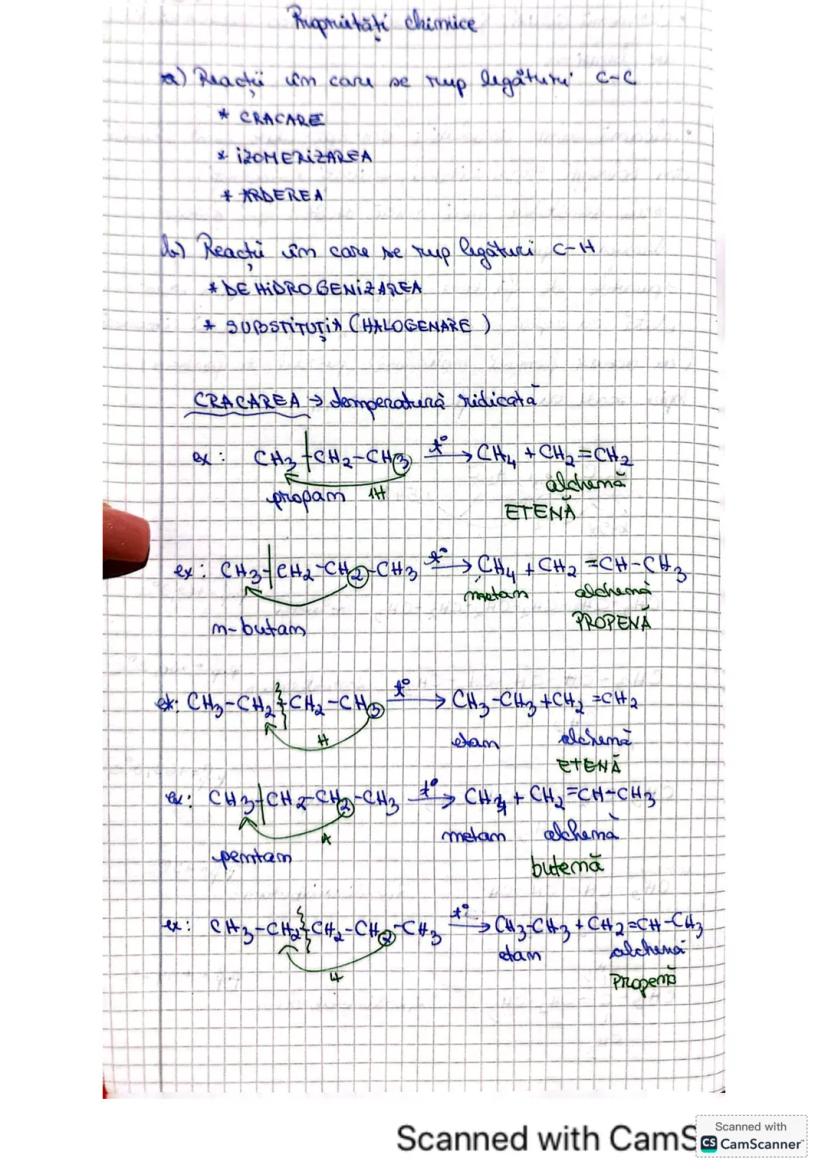 Proprietăți chimice
a) Reacții în care se rup legături C-C
* CRACARE
* IZOMERIZAREA
* ARDEREA
b) Reacții în care se rup legături C-H
* DEHIDROGENIZAREA
* SUBSTITUȚIA (HALOGENARE)
CRACAREA → temperatură ridicată
ex: CH3-CH2-CH3 t° → CH4 + CH2=CH2
propan 1H alchenă
ETENĂ
ex: CH3-CH2-CH2-CH3 t° → CH4 + CH2=CH-CH3
metan alchenă
n-butan PROPENĂ
ex: CH3-CH2-CH2-CH3 t° → CH3-CH3+CH2=CH2
H etan alchenă
ETENĂ
ex: CH3-CH2-CH2-CH3 t° → CH4 + CH2=CH-CH3
H metan alchenă
pentan butenă
ex: CH3-CH2-CH2-CH2-CH3 t° → CH3-CH3+CH2=CH-CH3
H etan alchenă
Propenă
Scanned with CamS
Scanned with
CS CamScanner